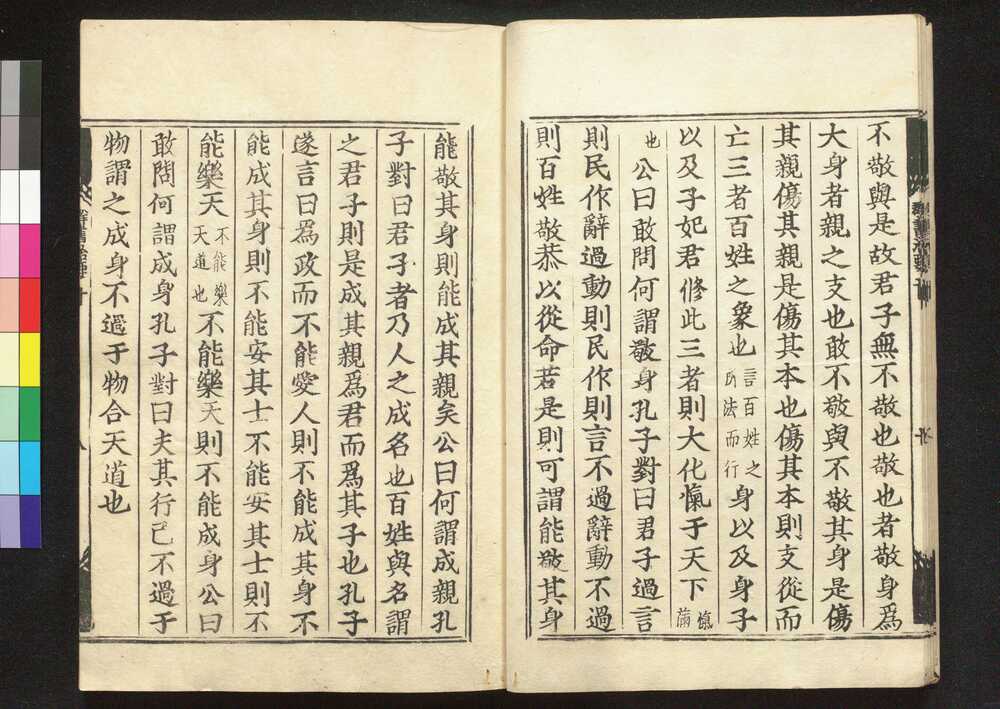 不敬與是故君子無不敬也敬也者敬身爲
大身者親之支也敢不敬與不敬其身是傷
其親傷其親是傷其本也傷其本則支從而
亡三者百姓之象也言百姓之所法而行身以及身子
以及子妃以及妃君修此三者則大化愾于天下愾滿
也公曰敢問何謂敬身孔子對曰君子過言
則民作辭過動則民作則言不過辭動不過
則百姓敬恭以從命若是則可謂能敬其身
能敬其身則能成其親矣公曰何謂成親孔
子對曰君子者乃人之成名也百姓與名謂
之君子則是成其親爲君而爲其子也孔子
遂言曰爲政而不能愛人則不能成其身不
能成其身則不能安其土不能安其土則不
能樂天不能樂天道也不能樂天則不能成身公曰
敢問何謂成身孔子對曰夫其行己不過于
物謂之成身不過于物合天道也